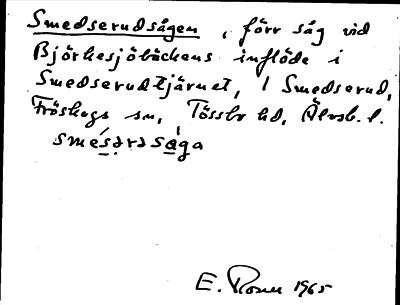 Smedserudsågen, förr såg vid
Björkesjöbäckens inflöde i
Smedserudtjärnet, / Smedserud,
Fröskogs sn, Tössbo hd, Älvsb. l.
smésərəsåga
E. Rosell 1965